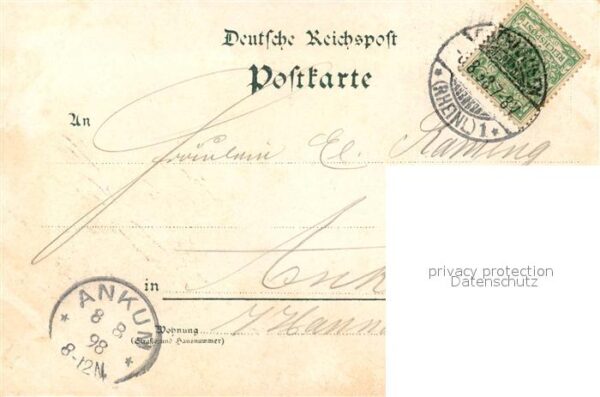 Deutsche Reichspost
Postkarte
(RHEINL) 1
An
Fräulein El. Ramling
privacy protection
Datenschutz
in
Ank
Wohnung
(Straße und Hausnummer)
Hann
ANKUM
8 8
98
8-12N.